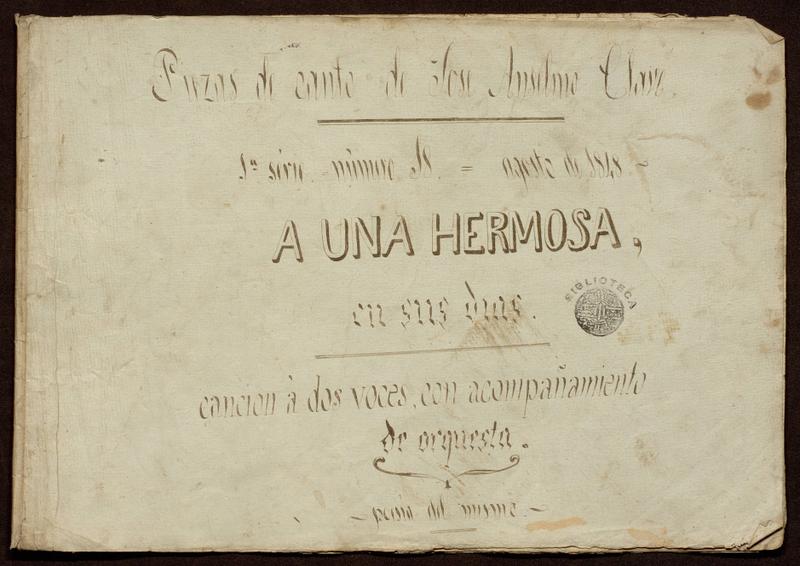 Piezas de canto de José Anselmo Clavé.
1ª série. número 18. = agosto de 1848 -
A UNA HERMOSA,
en sus dias.
BIBLIOTECA
cancion à dos voces, con acompañamiento
de orquesta.
- poesía del mismo. -